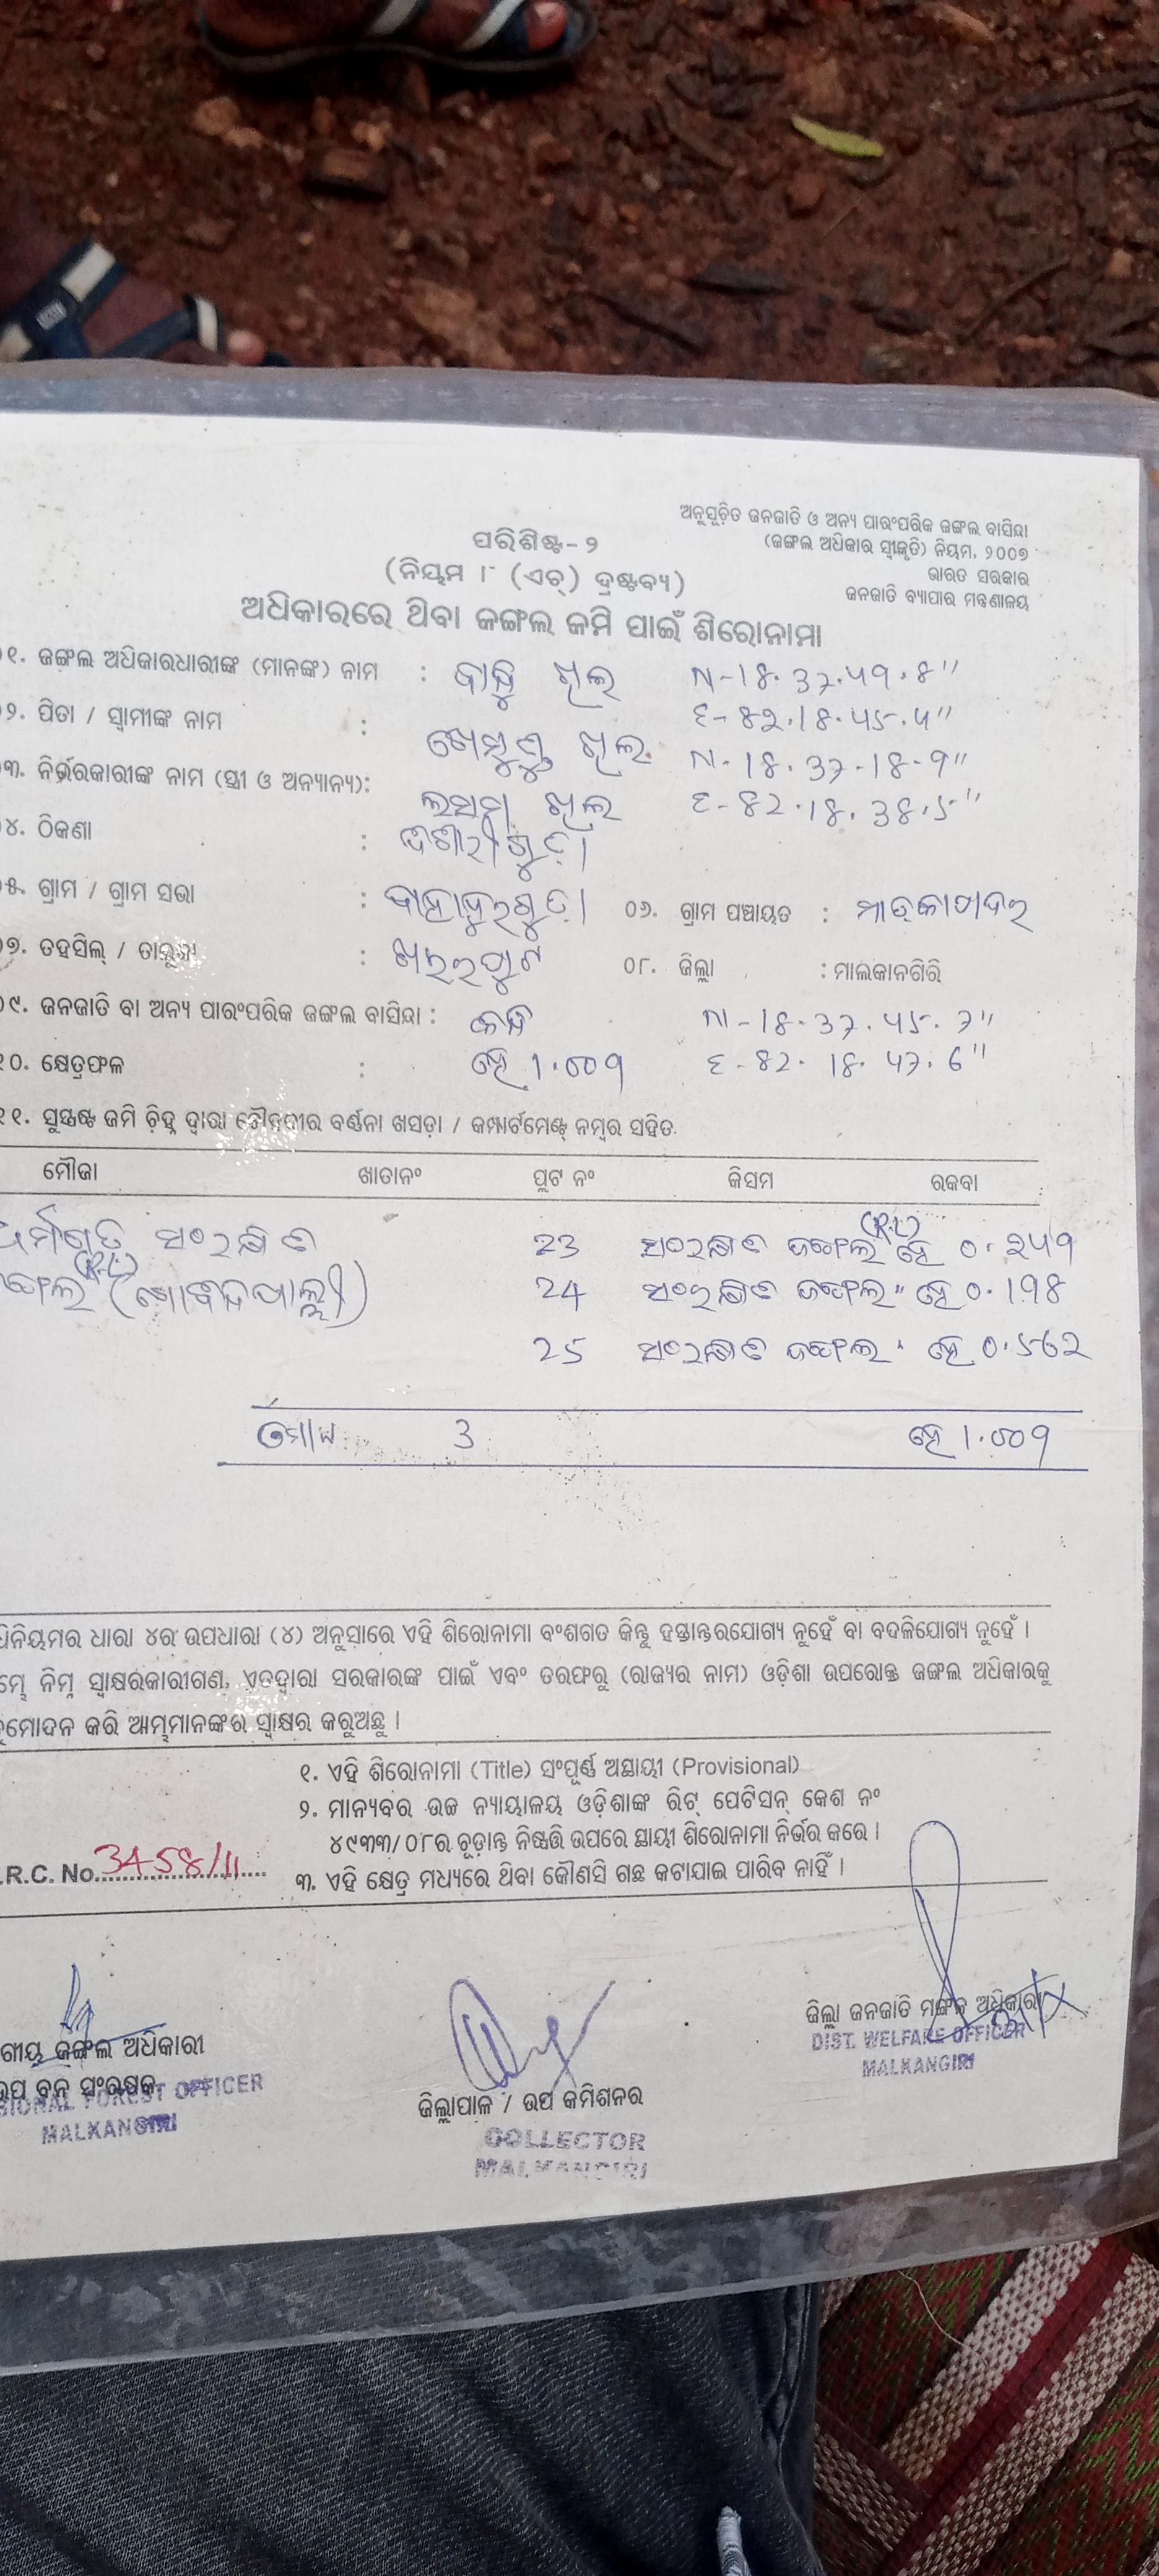 ଅନୁସୂଚିତ ଜନଜାତି ଓ ଅନ୍ୟ ପାରଂପରିକ ଜଙ୍ଗଲ ବାସିନ୍ଦା
(ଜଙ୍ଗଲ ଅଧିକାର ସ୍ୱୀକୃତି) ନିୟମ, ୨୦୦୭
ଭାରତ ସରକାର
ଜନଜାତି ବ୍ୟାପାର ମନ୍ତ୍ରଣାଳୟ
ପରିଶିଷ୍ଟ - ୨
(ନିୟମ ୮ (ଏଚ୍) ଦ୍ରଷ୍ଟବ୍ୟ)
ଅଧିକାରରେ ଥିବା ଜଙ୍ଗଲ ଜମି ପାଇଁ ଶିରୋନାମା
୧. ଜଙ୍ଗଲ ଅଧିକାରଧାରୀଙ୍କ (ମାନଙ୍କ) ନାମ : ଖିଲ N-18.37.49.8"
୨. ପିତା / ସ୍ୱାମୀଙ୍କ ନାମ : ଖିଲ E-82.18.45.4"
୩. ନିର୍ଭରକାରୀଙ୍କ ନାମ (ସ୍ତ୍ରୀ ଓ ଅନ୍ୟାନ୍ୟ): ଖିଲ N-18.37.18.9"
E-82.18.38.5"
୪. ଠିକଣା :
୫. ଗ୍ରାମ / ଗ୍ରାମ ସଭା : ବାହାଦୁରଗୁଡ଼ା ୦୬. ଗ୍ରାମ ପଞ୍ଚାୟତ :
୭. ତହସିଲ୍ / ତାଲୁକା : ଖଇରପୁଟ ୦୮. ଜିଲ୍ଲା : ମାଲକାନଗିରି
୦୯. ଜନଜାତି ବା ଅନ୍ୟ ପାରଂପରିକ ଜଙ୍ଗଲ ବାସିନ୍ଦା : N-18.37.45.7"
୧୦. କ୍ଷେତ୍ରଫଳ : ହେ 1.009 E-82.18.47.6"
୧୧. ସୁସ୍ପଷ୍ଟ ଜମି ଚିହ୍ନ ଦ୍ୱାରା ଚୌହଦୀର ବର୍ଣ୍ଣନା ଖସଡ଼ା / କମ୍ପାର୍ଟମେଣ୍ଟ୍ ନମ୍ବର ସହିତ.
ମୌଜା ଖାତାନଂ ପ୍ଲଟ ନଂ କିସମ ରକବା
ସଂରକ୍ଷିତ 23 ସଂରକ୍ଷିତ ଜଙ୍ଗଲ ହେ 0.249
(ଗୋବିନ୍ଦପାଲ୍ଲୀ) 24 ସଂରକ୍ଷିତ ଜଙ୍ଗଲ " ହେ 0.198
25 ସଂରକ୍ଷିତ ଜଙ୍ଗଲ " ହେ 0.562
3 ହେ 1.009
ଧାରା ୪ର ଉପଧାରା (୪) ଅନୁସାରେ ଏହି ଶିରୋନାମା ବଂଶଗତ କିନ୍ତୁ ହସ୍ତାନ୍ତରଯୋଗ୍ୟ ନୁହେଁ ବା ବଦଳିଯୋଗ୍ୟ ନୁହେଁ ।
ନିମ୍ନ ସ୍ୱାକ୍ଷରକାରୀଗଣ, ଏତଦ୍ୱାରା ସରକାରଙ୍କ ପାଇଁ ଏବଂ ତରଫରୁ (ରାଜ୍ୟର ନାମ) ଓଡ଼ିଶା ଉପରୋକ୍ତ ଜଙ୍ଗଲ ଅଧିକାରକୁ
କରି ଆମ୍ଭମାନଙ୍କର ସ୍ୱାକ୍ଷର କରୁଅଛୁ ।
୧. ଏହି ଶିରୋନାମା (Title) ସଂପୂର୍ଣ୍ଣ ଅସ୍ଥାୟୀ (Provisional)
୨. ମାନ୍ୟବର ଉଚ୍ଚ ନ୍ୟାୟାଳୟ ଓଡ଼ିଶାଙ୍କ ରିଟ୍ ପେଟିସନ୍ କେଶ ନଂ
୪୯୩୩/୦୮ର ଚୂଡ଼ାନ୍ତ ନିଷ୍ପତ୍ତି ଉପରେ ସ୍ଥାୟୀ ଶିରୋନାମା ନିର୍ଭର କରେ ।
.R.C. No. 3458/11
୩. ଏହି କ୍ଷେତ୍ର ମଧ୍ୟରେ ଥିବା କୌଣସି ଗଛ କଟାଯାଇ ପାରିବ ନାହିଁ ।
ଜଙ୍ଗଲ ଅଧିକାରୀ
ବନ ସଂରକ୍ଷକ
FOREST OFFICER
MALKANGIRI
ଜିଲ୍ଲାପାଳ / ଉପ କମିଶନର
COLLECTOR
MALKANGIRI
ଜିଲ୍ଲା ଜନଜାତି ମଙ୍ଗଳ ଅଧିକାରୀ
DIST. WELFARE OFFICER
MALKANGIRI